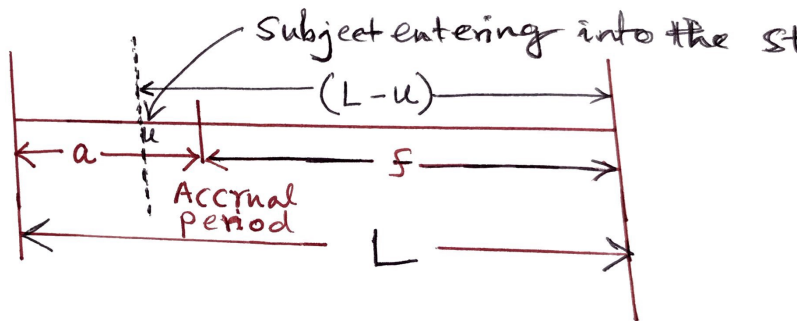 Subject entering into the st
(L-u)
u
a
f
Accrual
period
L